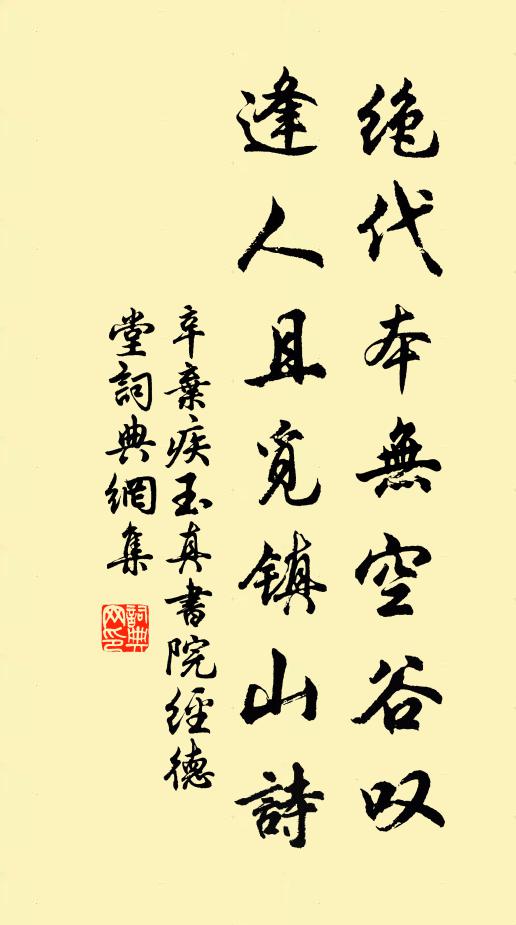 绝代本無空谷叹
逢人且覓镇山詩
辛棄疾玉真書院經德
堂詞典網集
詞典
网印